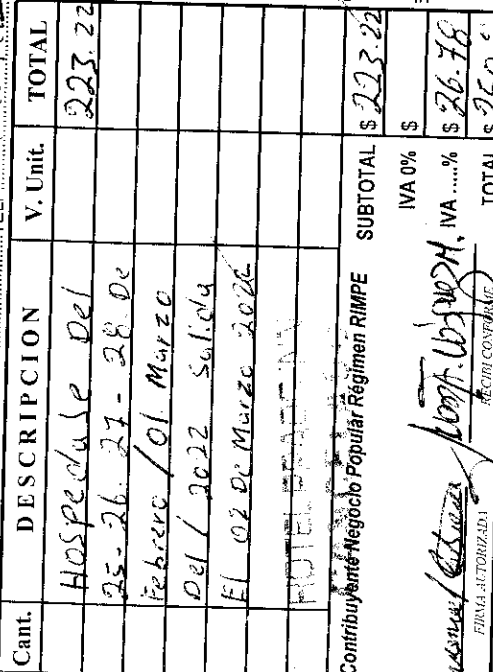 Cant. DESCRIPCION V. Unit. TOTAL
Hospedaje Del 223.22
25-26-27-28 De
Febrero / 01 Marzo
Del / 2022 Salida
El 02 De Marzo 2022
HOTEL
Contribuyente Negocio Popular Régimen RIMPE SUBTOTAL $ 223.22
IVA 0% $
IVA .....% $ 26.78
TOTAL $
FIRMA AUTORIZADA RECIBI CONFORME